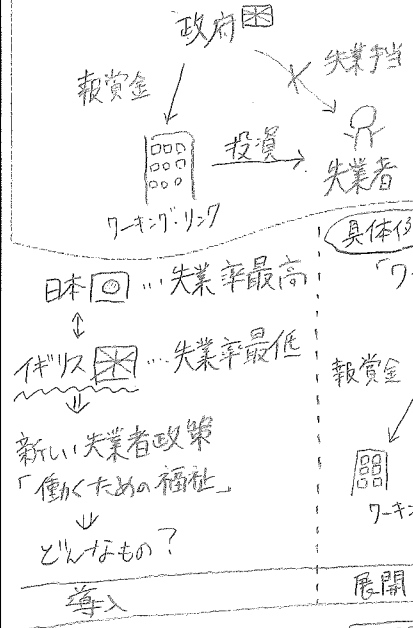 政府
報賞金
失業手当
投資
失業者
ワーキング・リンク
日本 … 失業率最高
イギリス … 失業率最低
新しい失業者政策
「働くための福祉」
どんなもの?
導入
具体例
「ワ
報賞金
ワーキン
展開